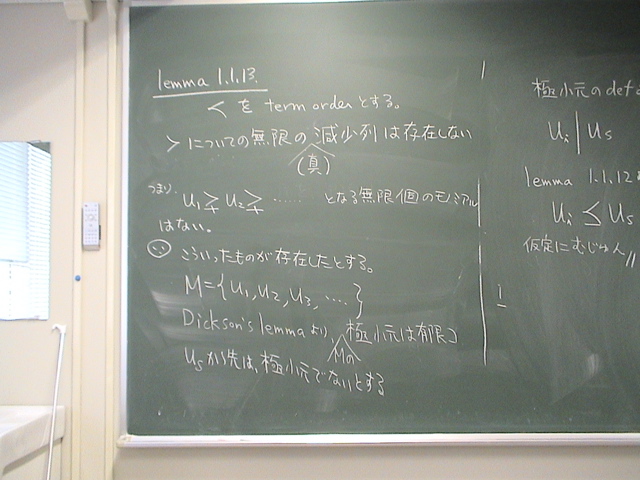 lemma 1.1.13.
< を term orderとする。
> についての無限の減少列は存在しない
(真)
つまり、 U₁ ≩ U₂ ≩ …… となる無限個のモノミアル
はない。
∵ こういったものが存在したとする。
M={U₁, U₂, U₃, … }
Dickson's lemma より、極小元は有限コ
Mの
Us から先は、極小元でないとする
極小元のdef
Ui | Us
lemma 1.1.12
Ui ≤ Us
仮定にむじゅん //